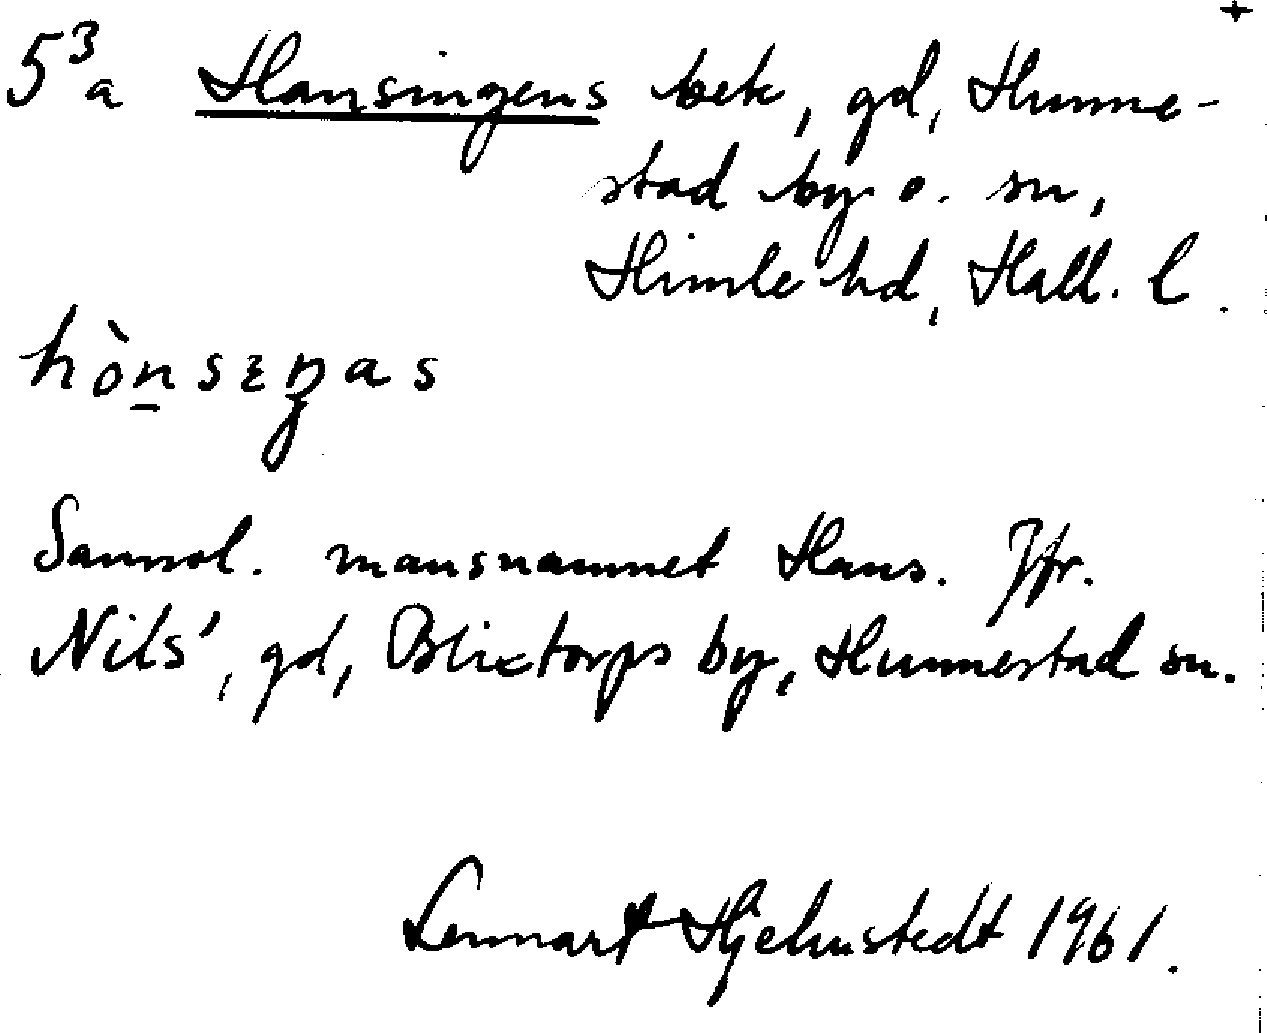 +
5³a Hansingens bek, gd, Hunne-
stad by o. sn,
Himle hd, Hall. l.
hònsɛŋas
Sannol. mansnamnet Hans. Jfr.
Nils', gd, Blixtorps by, Hunnestad sn.
Lennart Hjelmstedt 1961.